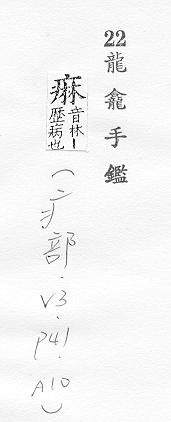 22 龍龕手鑑
痳
音林丨
歷病也
(疒部.V3.P41.A10)